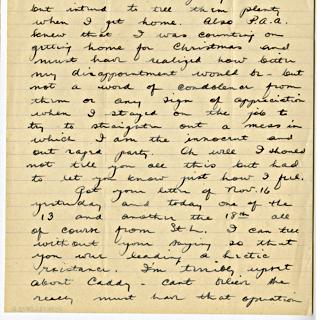 but intend to tell them plenty
when I get home. Also P.A.A.
knew that I was counting on
getting home for Christmas and
must have realized how bitter
my disappointment would be - but
not a word of condolence from
them or any sign of appreciation
when I stayed on the job to
try to straighten out a mess in
which I am the innocent and
out raged party. Oh well I should
not tell you all this but had
to let you know just how I feel.
Got your letter of Nov. 16
yesterday and today one of the
13 and another the 18th all
of course from St L. I can tell
without your saying so that
you were leading a hectic
existance. I'm terribly upset
about Caddy - cant believe she
really must have that operation